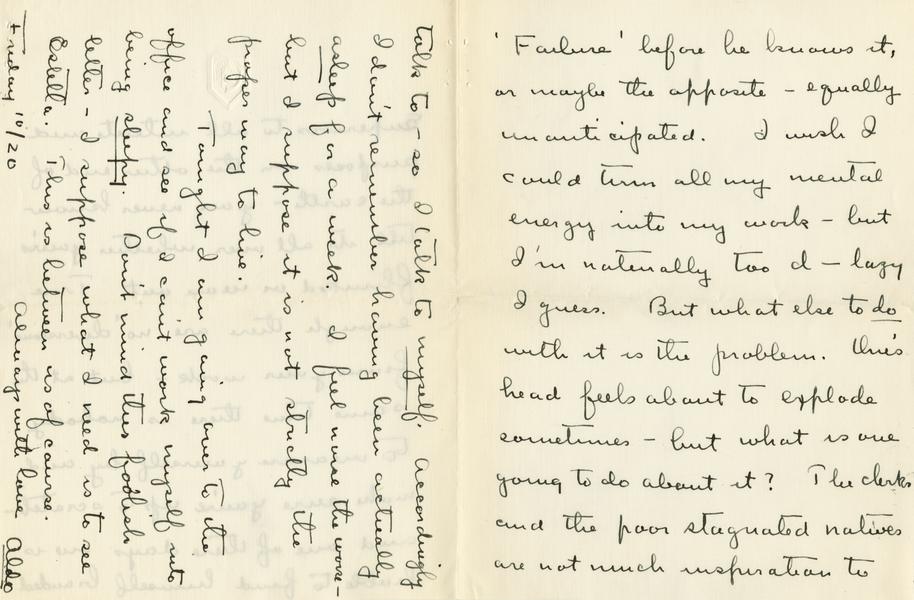 'Failure' before he knows it,
or maybe the opposite – equally
unanticipated. I wish I
could turn all my mental
energy into my work – but
I'm naturally too d – lazy
I guess. But what else to do
with it is the problem. One's
head feels about to explode
sometimes – but what is one
going to do about it? The clerks
and the poor stagnated natives
are not much inspiration to
talk to – so I talk to myself. Accordingly
I don't remember having been actually
asleep for a week. I feel none the worse –
but I suppose it is not strictly the
proper way to live.
Tonight I am going over to the
office and see if I can't work myself into
being sleepy. Don't mind this foolish
letter – I suppose what I need is to see
Estella. This is between us of course.
Always with love Aldo
Friday 10/20